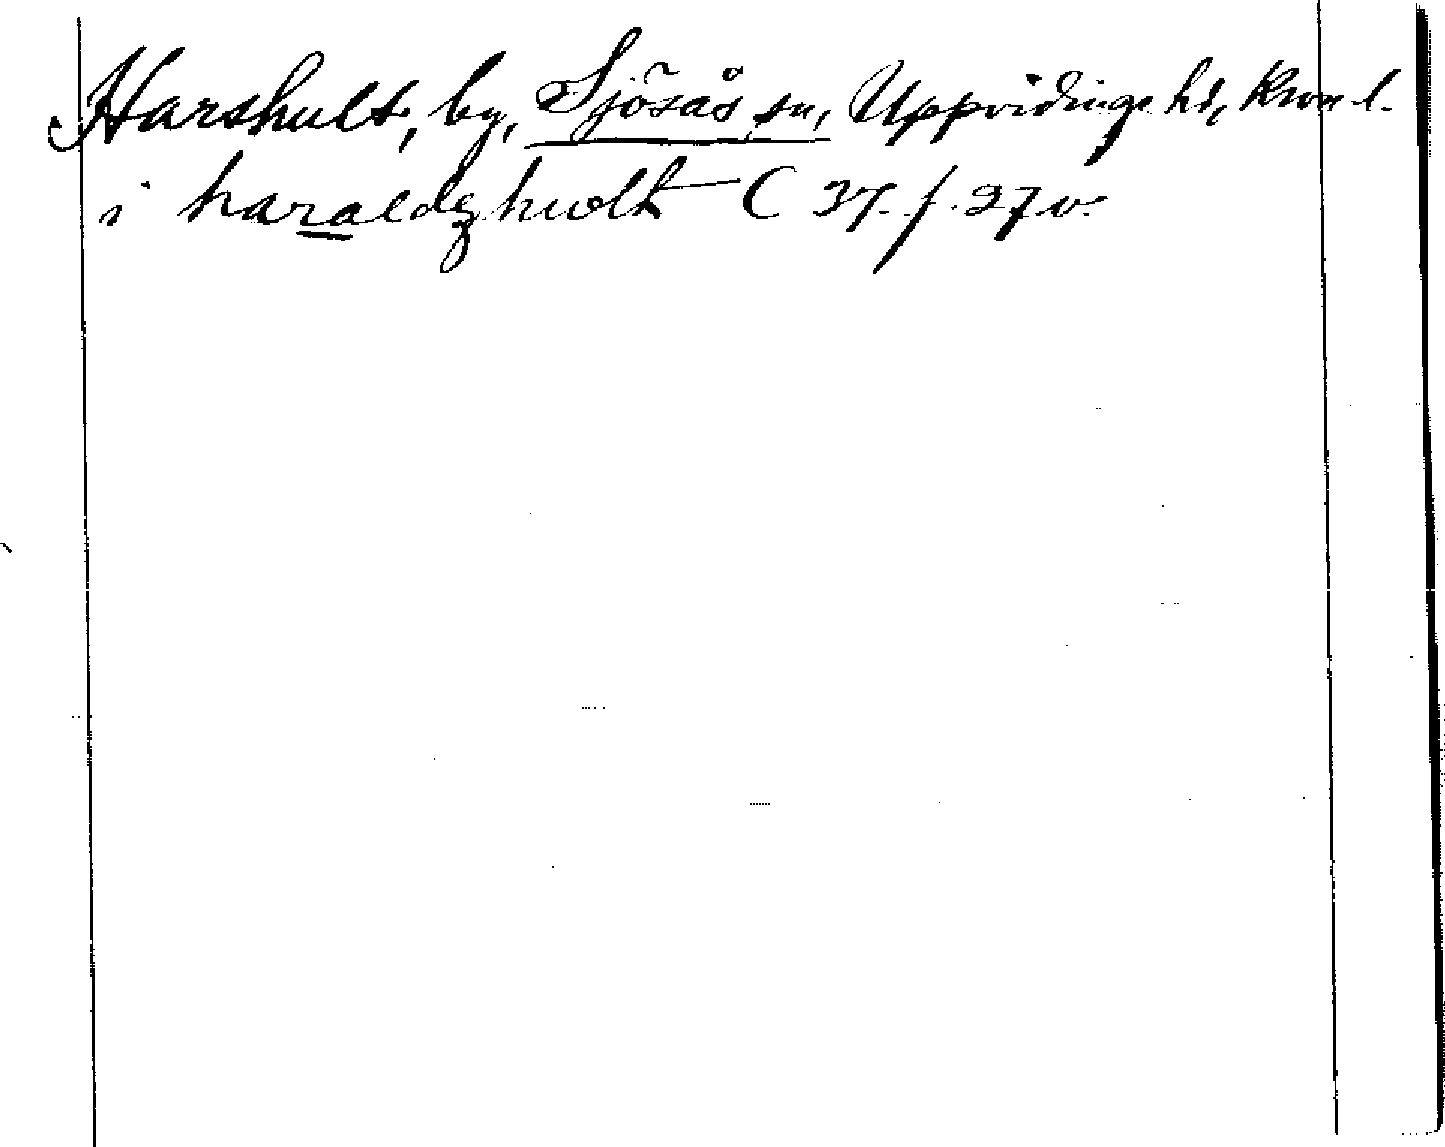 Harshult, by, Sjösås sn, Uppvidinge hd, Kron. l.
i haraldzhwlt C 37. f. 27 v.